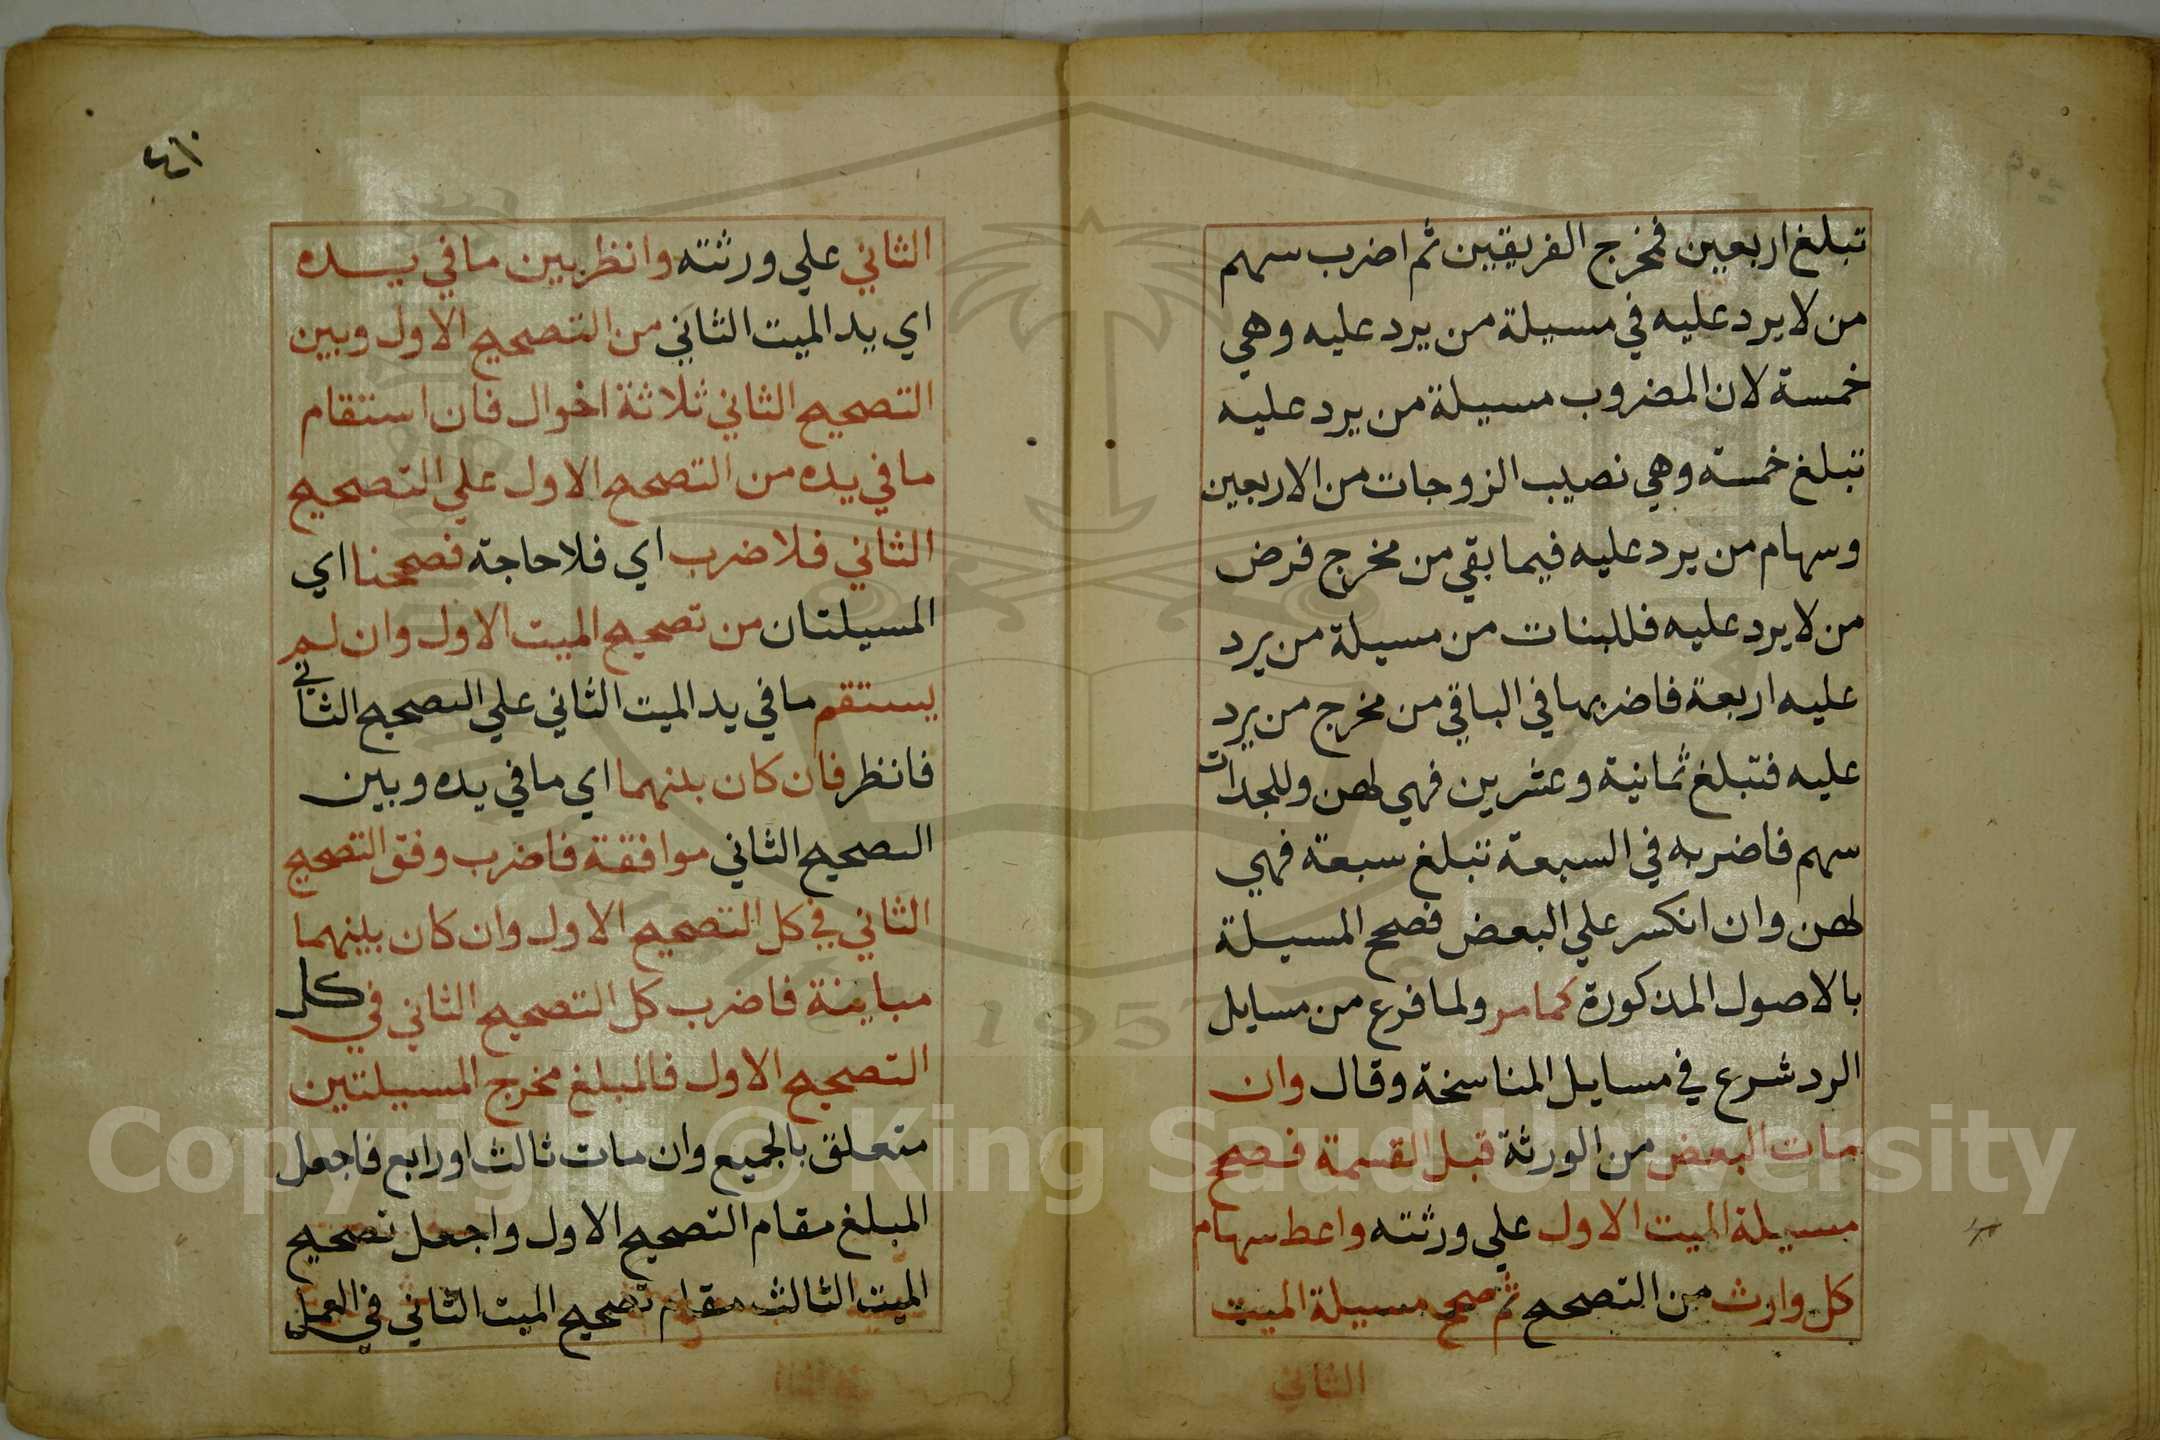 تبلغ اربعين فمخرج الفريقين ثم اضرب سهم
من لا يرد عليه في مسيلة من يرد عليه وهي
خمسة لان المضروب مسيلة من يرد عليه
تبلغ خمسة وهي نصيب الزوجات من الاربعين
وسهام من يرد عليه فيما بقي من مخرج فرض
من لا يرد عليه فللبنات من مسيلة من يرد
عليه اربعة فاضربها في الباقي من مخرج من يرد
عليه فتبلغ ثمانية وعشرين فهي لهن وللجدات
سهم فاضربه في السبعة تبلغ سبعة فهي
لهن وان انكسر علي البعض فصحح المسيلة
بالاصول المذكورة كما مر ولما فرغ من مسايل
الرد شرع في مسايل المناسخة وقال وان
مات البعض من الورثة قبل القسمة فصحح
مسيلة الميت الاول علي ورثته واعط سهام
كل وارث من التصحيح ثم صحح مسيلة الميت
الثاني
٤١
الثاني علي ورثته وانظر بين ما في يده
اي يد الميت الثاني من التصحيح الاول وبين
التصحيح الثاني ثلاثة احوال فان استقام
ما في يده من التصحيح الاول علي التصحيح
الثاني فلا ضرب اي فلا حاجة فصححنا اي
المسيلتان من تصحيح الميت الاول وان لم
يستقم ما في يد الميت الثاني علي التصحيح الثاني
فانظر فان كان بينهما اي ما في يده وبين
التصحيح الثاني موافقة فاضرب وفق التصحيح
الثاني في كل التصحيح الاول وان كان بينهما
مباينة فاضرب كل التصحيح الثاني في كل
التصحيح الاول فالمبلغ مخرج المسيلتين
متعلق بالجميع وان مات ثالث او رابع فاجعل
المبلغ مقام التصحيح الاول واجعل تصحيح
الميت الثالث مقام تصحيح الميت الثاني في العمل
1957
Copyright © King Saud University